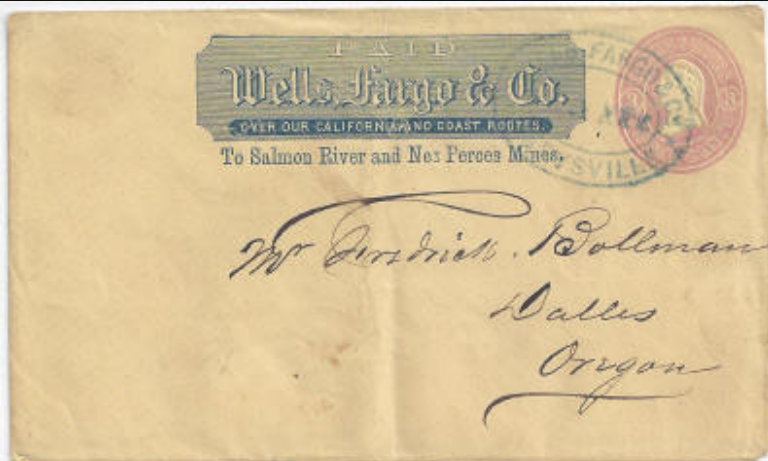 PAID
Wells, Fargo & Co.
OVER OUR CALIFORNIA AND COAST ROUTES.
To Salmon River and Nez Perces Mines,
FARGO & CO
SVILLE
Mr Fredrick. Bollman
Dalles
Oregon